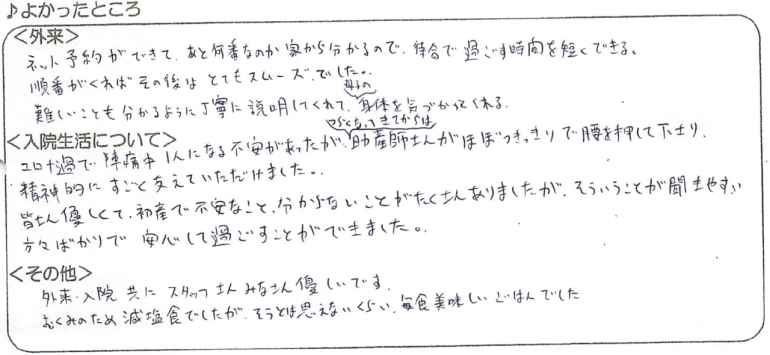 ♪よかったところ
<外来>
ネット予約ができて、あと何番なのか家から分かるので、待合で過ごす時間を短くできる。
順番がくればその後はとてもスムーズでした。
母子の
難しいことも分かるように丁寧に説明してくれて、身体を気づかってくれる。
<入院生活について>
つらくなってきてからは
コロナ過で陣痛中1人になる不安があったが、助産師さんがほぼつきっきりで腰を押して下さり、
精神的にすごと支えていただけました。
皆さん優しくて、初産で不安なこと、分からないことがたくさんありましたが、そういうことが聞きやすい
方々ばかりで安心して過ごすことができました。
<その他>
外来・入院共にスタッフさんみなさん優しいです。
むくみのため減塩食でしたが、そうとは思えないくらい、毎食美味しいごはんでした